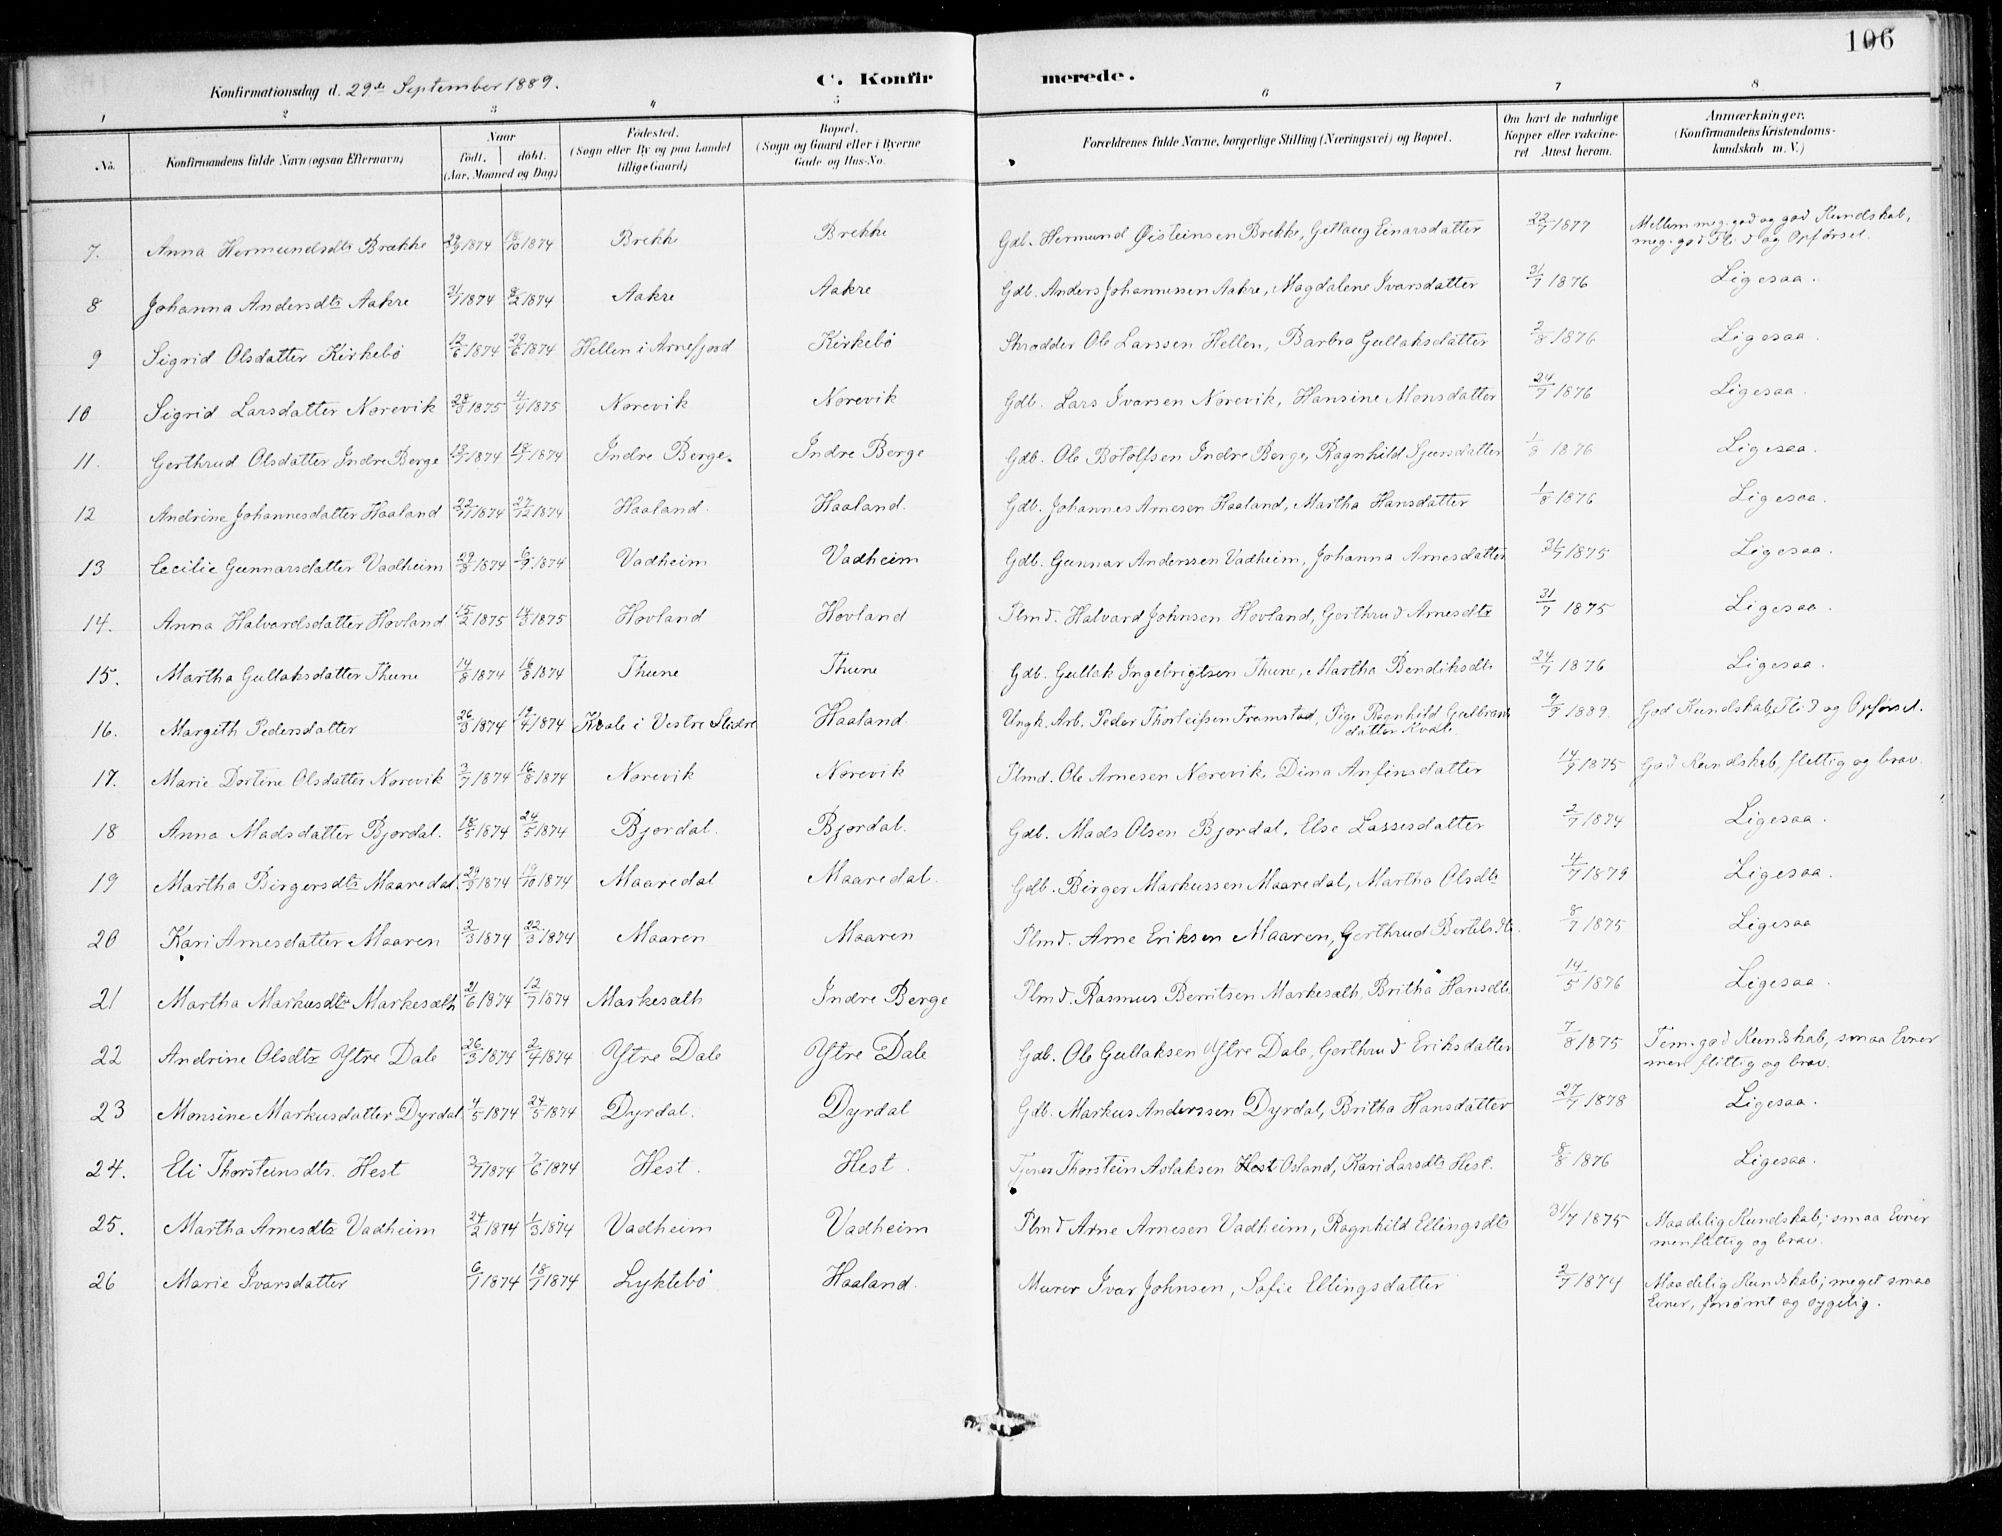 106
Konfirmationsdag d. 29de September 1889.
C. Konfirmerede.
1 2 3 4 5 6 7 8
No. Konfirmandens fulde Navn (ogsaa Efternavn) Naar født, døbt. (Aar, Maaned og Dag) Fødested. (Sogn eller By og paa Landet tillige Gaard) Bopæl. (Sogn og Gaard eller i Byerne Gade og Hus-No. Forældrenes fulde Navne, borgerlige Stilling (Næringsvei) og Bopæl. Om havt de naturlige Kopper eller vaccineret Attest herom. Anmærkninger. (Konfirmandens Kristendomskundskab m. V.)
7. Anna Hermundsdtr Brække 29/9 1874 18/10 1874 Brekke Brekke Gdb. Hermund Øisteinsen Brekke, Gjtlaug Einarsdatter 22/7 1877 Mellem meg. god og god Kundskab, meg. god Flid og Opførsel.
8 Johanna Andersdtr Aakre 31/1 1874 8/2 1874 Aakre Aakre Gdb. Anders Johannessen Aakre, Magdalene Ivarsdatter 31/7 1876 Ligesaa.
9 Sigrid Olsdatter Kirkebø 12/6 1874 29/6 1874 Hellen i Arnefjord Kirkebø Skrædder Ole Larssen Hellen, Barbra Gullaksdatter 2/8 1876 Ligesaa.
10 Sigrid Larsdatter Norevik 28/3 1875 4/4 1875 Norevik Norevik Gdb. Lars Ivarsen Norevik, Hansine Monsdatter 24/7 1876 Ligesaa.
11. Gerthrud Olsdatter Indre Berge 13/7 1874 19/7 1874 Indre Berge. Indre Berge Gdb. Ole Botolfsen Indre Berge, Ragnhild Sjursdatter 1/8 1876 Ligesaa.
12 Andrine Johannesdatter Haaland 22/11 1874 27/12 1874 Haaland. Haaland. Gdb. Johannes Arnesen Haaland, Martha Hansdatter 1/8 1876 Ligesaa.
13 Cecilie Gunnarsdatter Vadheim 29/8 1874 6/9 1874 Vadheim Vadheim Gdb. Gunnar Anderssen Vadheim, Johanna Arnesdatter 31/7 1875 Ligesaa.
14. Anna Halvardsdatter Hovland 15/2 1875 14/3 1875 Hovland Hovland Plmd. Halvard Johnsen Hovland, Gerthrud Arnesdtr 31/7 1875 Ligesaa.
15. Martha Gullaksdatter Thune 14/8 1874 16/8 1874 Thune Thune Gdb. Gullak Ingebrigtsen Thune, Martha Bendiksdtr 24/7 1876 Ligesaa.
16. Margith Pedersdatter 26/3 1874 19/4 1874 Kvale i Vestre Slidre Haaland. Ungk. Arb. Peder Thorleifsen Framstad, Pige Ragnhild Gulbrandsdatter Kvale. 9/9 1889. God Kundskab, Flid og Opførsel.
17. Marie Dortine Olsdatter Norevik 3/7 1874 16/8 1874 Norevik Norevik Plmd. Ole Arnesen Nerevik, Dina Anfinsdatter 14/9 1875 God Kundskab, flittig og brav.
18 Anna Madsdatter Bjordal. 18/5 1874 24/5 1874 Bjordal. Bjordal. Gdb. Mads Olsen Bjordal, Else Lassesdatter 2/7 1874 Ligesaa.
19 Martha Birgersdtr Maaredal. 29/9 1874 19/10 1874 Maaredal Maaredal. Gdb. Birger Markussen Maaredal, Martha Olsdtr 4/7 1879 Ligesaa.
20 Kari Arnesdatter Maaren 2/3 1874 22/3 1874 Maaren Maaren Plmd. Arne Eriksen Maaren, Gerthrud Bertelsdtr. 8/7 1875 Ligesaa
21 Martha Markusdtr Markesæth 21/6 1874 12/7 1874 Markesæth Indre Berge Plmd. Rasmus Berritsen Markesæth, Britha Hansdtr. 14/5 1876 Ligesaa.
22 Andrine Olsdtr Ytre Dale 26/3 1874 2/4 1874 Ytre Dale Ytre Dale Gdb. Ole Gullaksen Ytre Dale, Gerthrud Eriksdatter 7/8 1875 Tem. god Kundskab, smaa Evner men flittig og brav.
23 Monsine Markusdatter Dyrdal 4/5 1874 24/5 1874 Dyrdal. Dyrdal Gdb. Markus Anderssen Dyrdal, Britha Hansdatter 27/7 1878 Ligesaa.
24. Eli Thorsteinsdtr. Hest 3/7 1874 7/6 1874 Hest. Hest. Tjener Thorstein Aslaksen Hest Osland, Kari Larsdtr Hest. 8/8 1876 Ligesaa.
25. Martha Arnesdtr Vadheim 24/2 1874 1/3 1874 Vadheim Vadheim Plmd Arne Arnesen Vadheim, Ragnhild Ellingsdtr 31/7 1875 Maadelig Kundskab; smaa Evner men flittig og brav.
26 Marie Ivarsdatter 6/1 1874 18/1 1874 Lyktebø Haaland. Murer Ivar Johnsen, Sofie Ellingsdatter 2/7 1874 Maadelig Kundskab; meget smaa Evner, forsømt og sygelig.